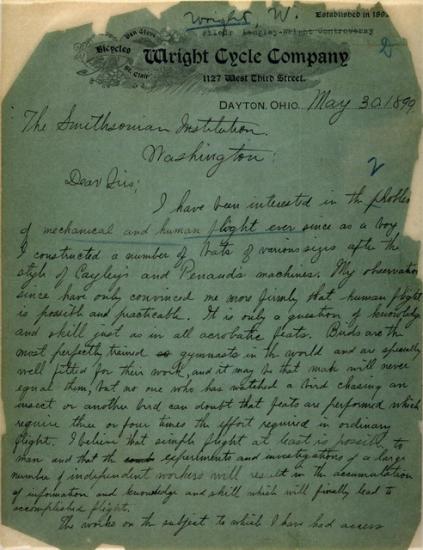 Wright, W.
Established in 189
File: Langley-Wright Controversy
Van Cleve
Bicycles
St. Clair
Wright Cycle Company
1127 West Third Street.
DAYTON, OHIO, May 30, 1899
The Smithsonian Institution.
Washington:
2
Dear Sirs;
I have been interested in the problem
of mechanical and human flight ever since as a boy
I constructed a number of bats of various sizes after the
style of Cayley's and Penaud's machines. My observations
since have only convinced me more firmly that human flight
is possible and practicable. It is only a question of knowledge
and skill just as in all acrobatic feats. Birds are the
most perfectly trained gymnasts in the world and are specially
well fitted for their work, and it may be that man will never
equal them, but no one who has watched a bird chasing an
insect or another bird can doubt that feats are performed which
require three or four times the effort required in ordinary
flight. I believe that simple flight at least is possible to
man and that the experiments and investigations of a large
number of independent workers will result in the accumulation
of information and knowledge and skill which will finally lead to
accomplished flight.
The works on the subject to which I have had access